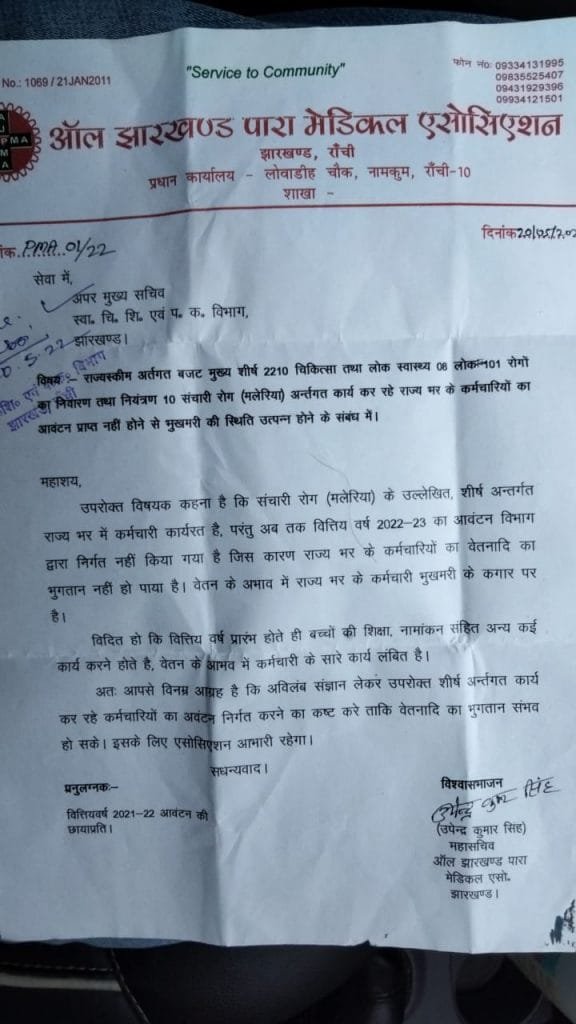 No.: 1069 / 21JAN2011
"Service to Community"
फोन नं0: 09334131995
09835525407
09431929396
09934121501
PMA
MA
ऑल झारखण्ड पारा मेडिकल एसोसिएशन
झारखण्ड, राँची
प्रधान कार्यालय - लोवाडीह चौक, नामकुम, राँची-10
शाखा -
PMA 01/22
दिनांक 20/05/202
सेवा में,
अपर मुख्य सचिव
स्वा. चि. शि. एवं प. क. विभाग,
झारखण्ड।
5.22
शि० एवं प०क० विभाग
झारखण्ड
विषय:- राज्यस्कीम अर्तगत बजट मुख्य शीर्ष 2210 चिकित्सा तथा लोक स्वास्थ्य 06 लोक-101 रोगों
का निवारण तथा नियंत्रण 10 संचारी रोग (मलेरिया) अर्न्तगत कार्य कर रहे राज्य भर के कर्मचारियों का
आवंटन प्राप्त नहीं होने से भुखमरी की स्थिति उत्पन्न होने के संबंध में।
महाशय,
उपरोक्त विषयक कहना है कि संचारी रोग (मलेरिया) के उल्लेखित, शीर्ष अन्तर्गत
राज्य भर में कर्मचारी कार्यरत है, परंतु अब तक वित्तिय वर्ष 2022-23 का आवंटन विभाग
द्वारा निर्गत नहीं किया गया है जिस कारण राज्य भर के कर्मचारियों का वेतनादि का
भुगतान नहीं हो पाया है। वेतन के अभाव में राज्य भर के कर्मचारी भुखमरी के कगार पर
है।
विदित हो कि वित्तिय वर्ष प्रारंभ होते ही बच्चों की शिक्षा, नामांकन संहित अन्य कई
कार्य करने होते है, वेतन के आभव में कर्मचारी के सारे कार्य लंबित है।
अतः आपसे विनम्र आग्रह है कि अविलंब संज्ञान लेकर उपरोक्त शीर्ष अर्न्तगत कार्य
कर रहे कर्मचारियों का अवंटन निर्गत करने का कष्ट करे ताकि वेतनादि का भुगतान संभव
हो सके। इसके लिए एसोसिएशन आभारी रहेगा।
सधन्यवाद।
प्रनुलग्नकः-
वित्तियवर्ष 2021-22 आवंटन की
छायाप्रति।
विश्वासभाजन
उपेन्द्र कुमार सिंह
(उपेन्द्र कुमार सिंह)
महासचिव
ऑल झारखण्ड पारा
मेडिकल एसो.
झारखण्ड।